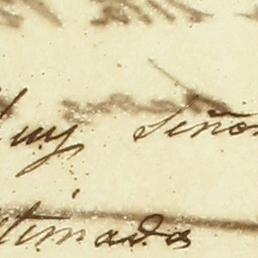 Muy Señor
stimada